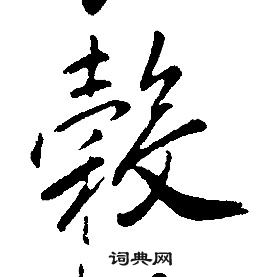 穀
词典网